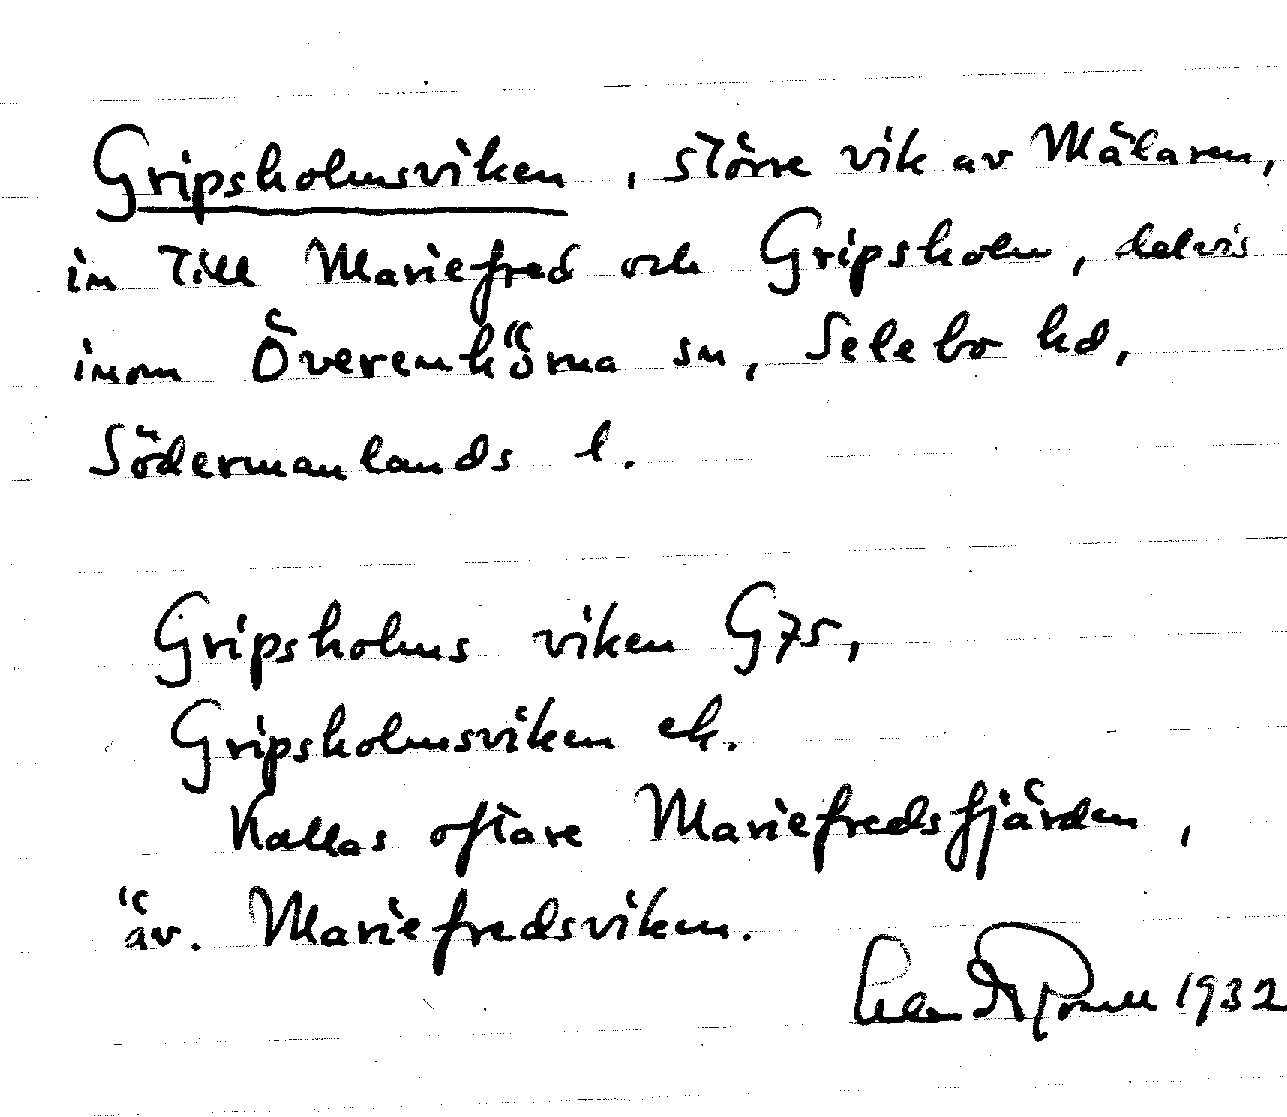 Gripsholmsviken, större vik av Mälaren,
in till Mariefred och Gripsholm, delvis
inom Överenhörna sn, Selebo hd,
Södermanlands l.
Gripsholms viken G75,
Gripsholmsviken ek.
Kallas oftare Mariefredsfjärden,
äv. Mariefredsviken.
1932